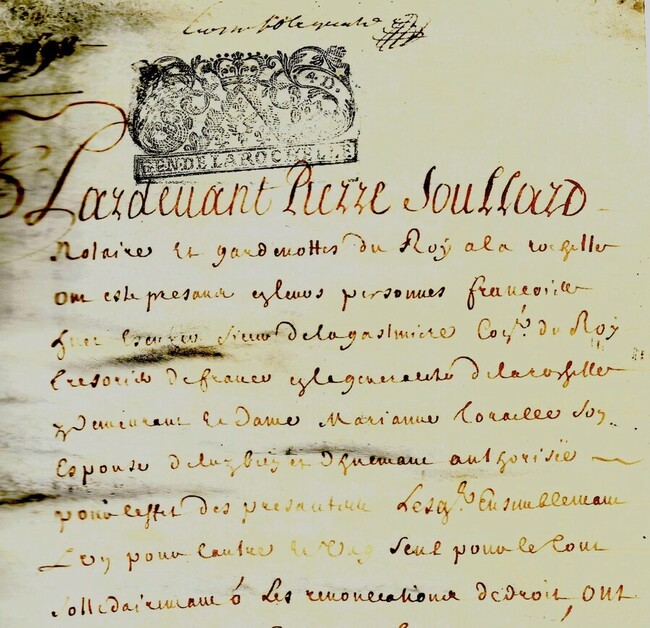 4.D.
GEN.DELAROCHELLE
Pardevant Pierre Soullard
Notaire Et gardenottes du Roÿ a la rochelle
ont este presans personnes francois
Sieur de la gastiniere Coner. du Roÿ
tresorier de france en la generalite de la rochelle
y demeurant et dame Marianne Soy
Espouse de luy bien et duemant authorisée
pour leffet des presantes Lesqls. Ensemblemant
Luy pour lautre et seul pour le tout
sollidairemant o Les renonciations de droit, ont